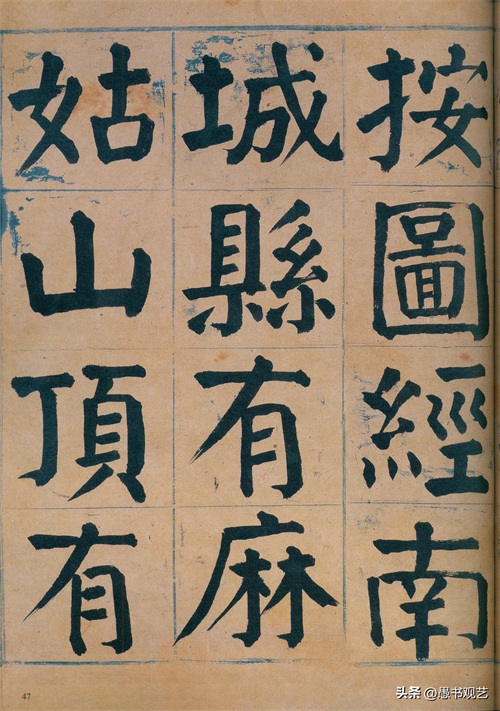 按圖經南
城縣有麻
姑山頂有
47
头条@愚书观艺